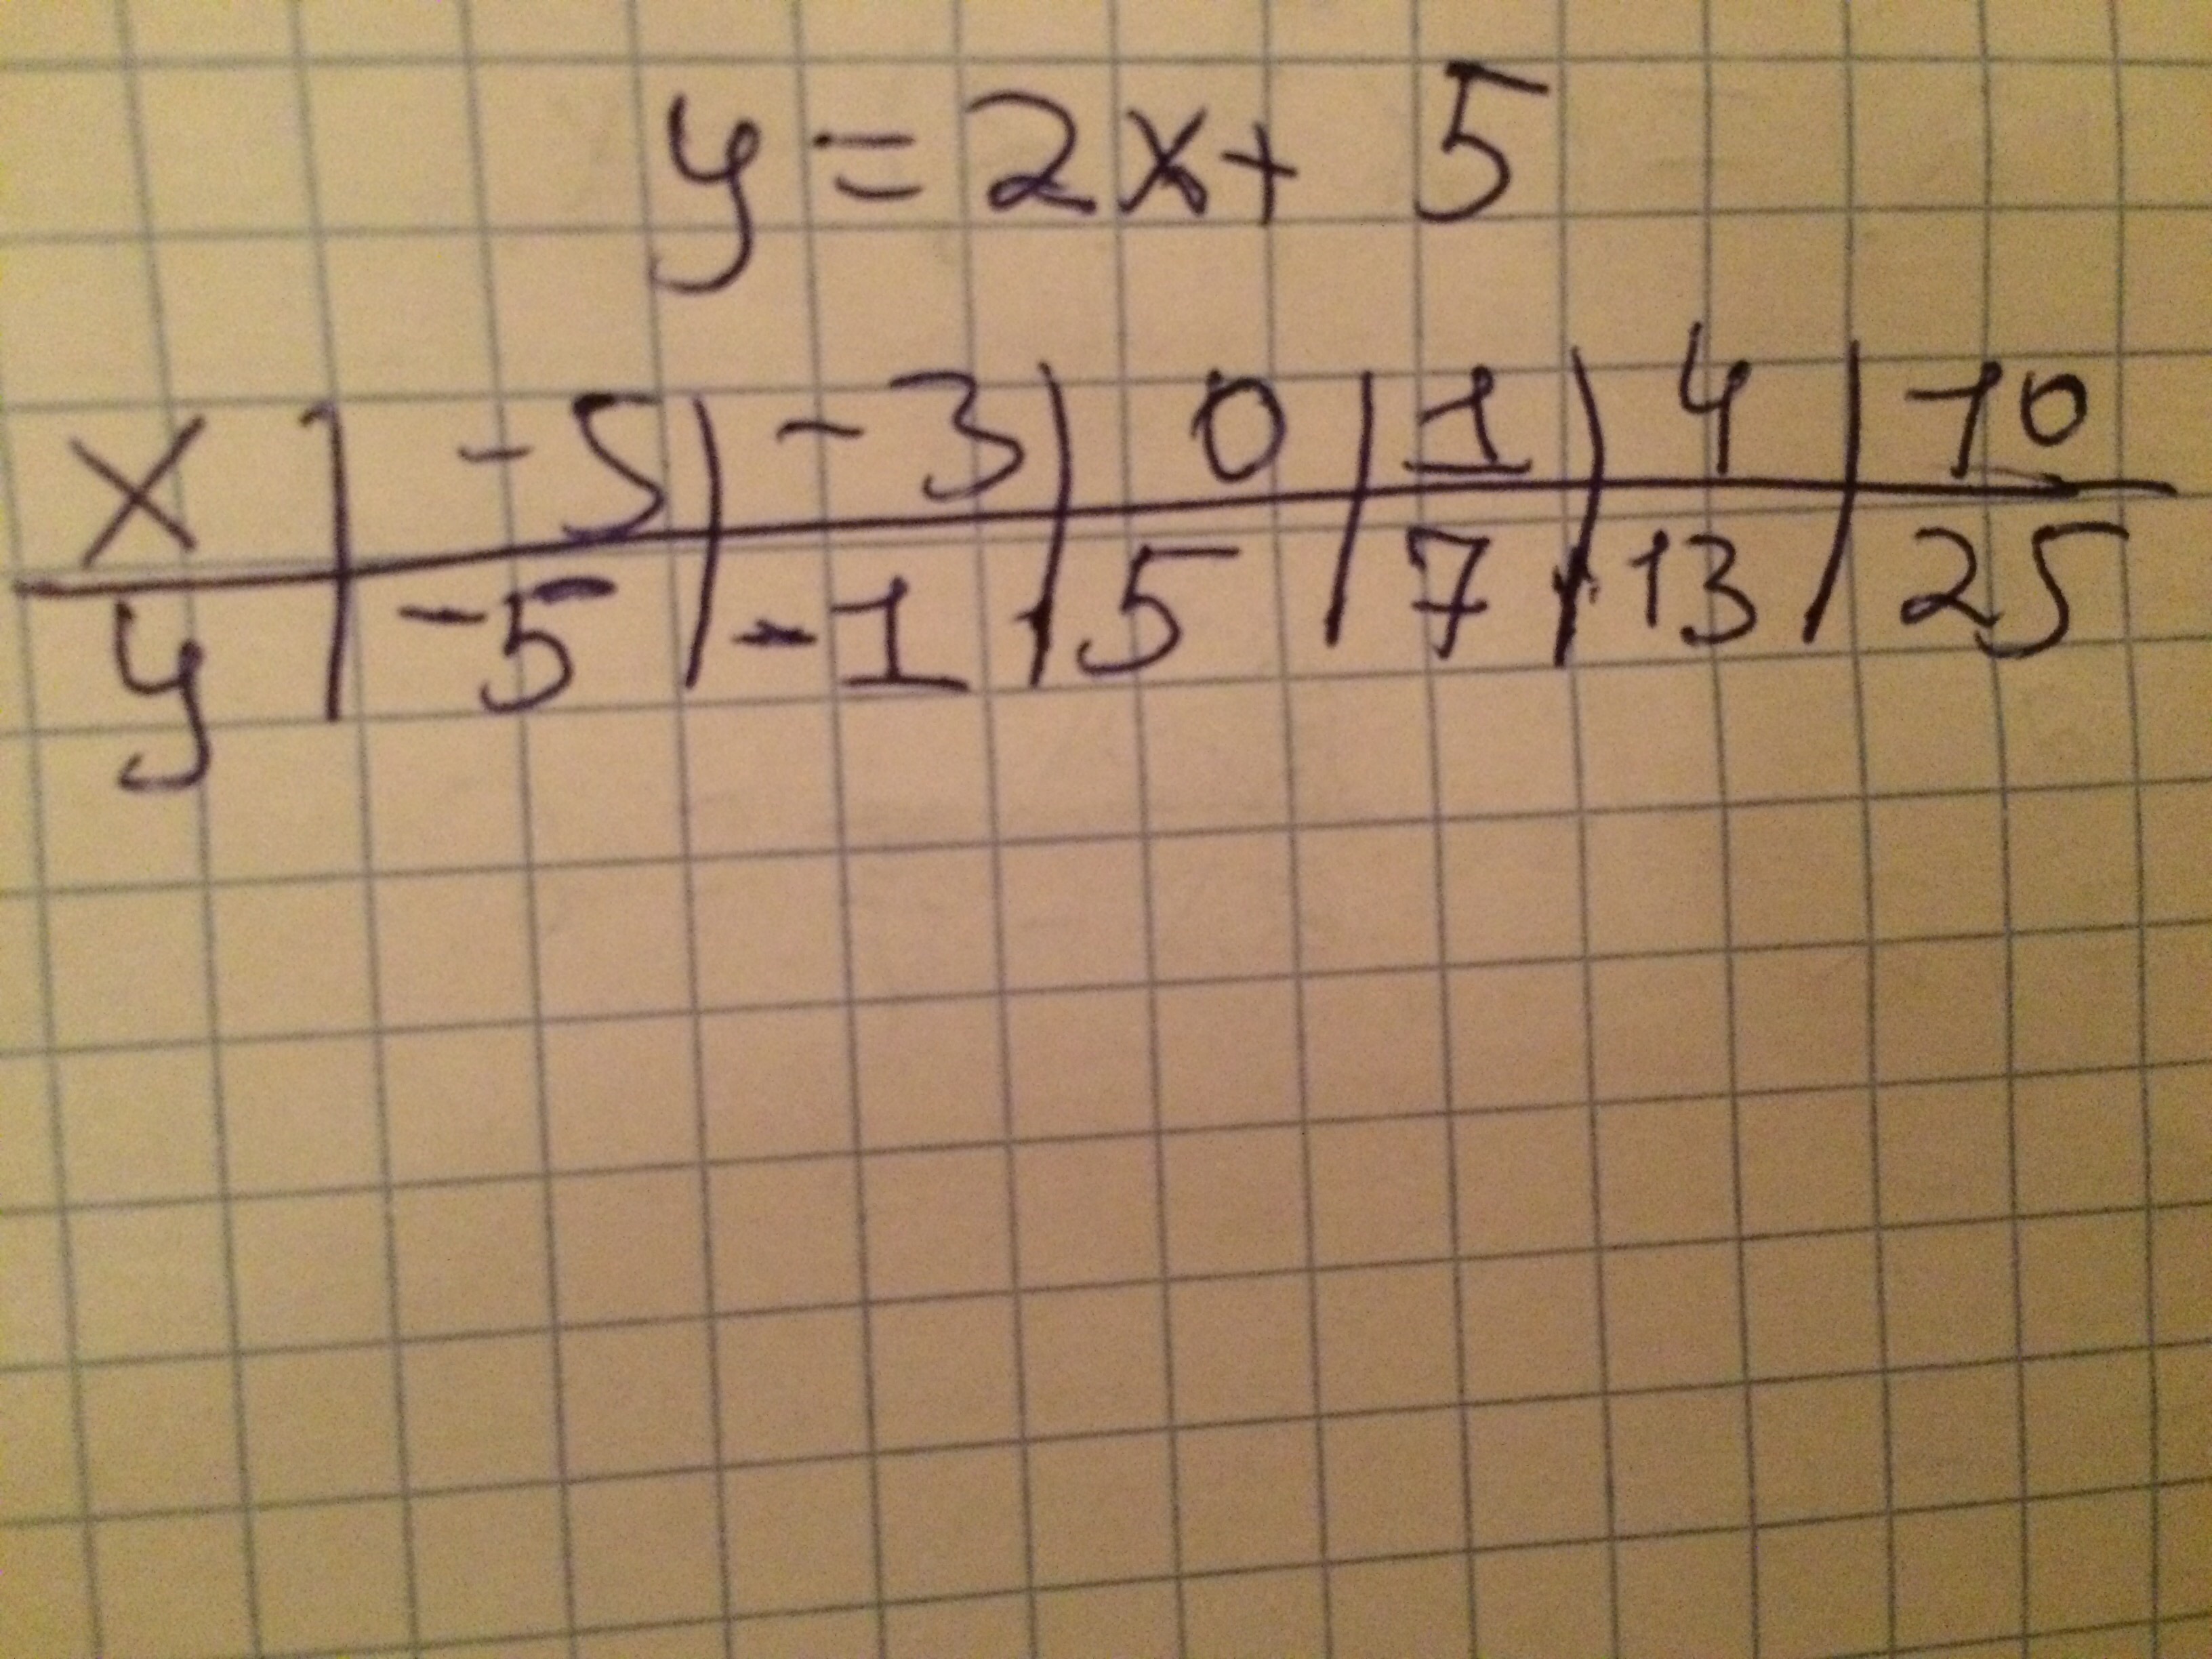 y = 2x + 5
x | -5 | -3 | 0 | 1 | 4 | 10
y | -5 | -1 | 5 | 7 | 13 | 25